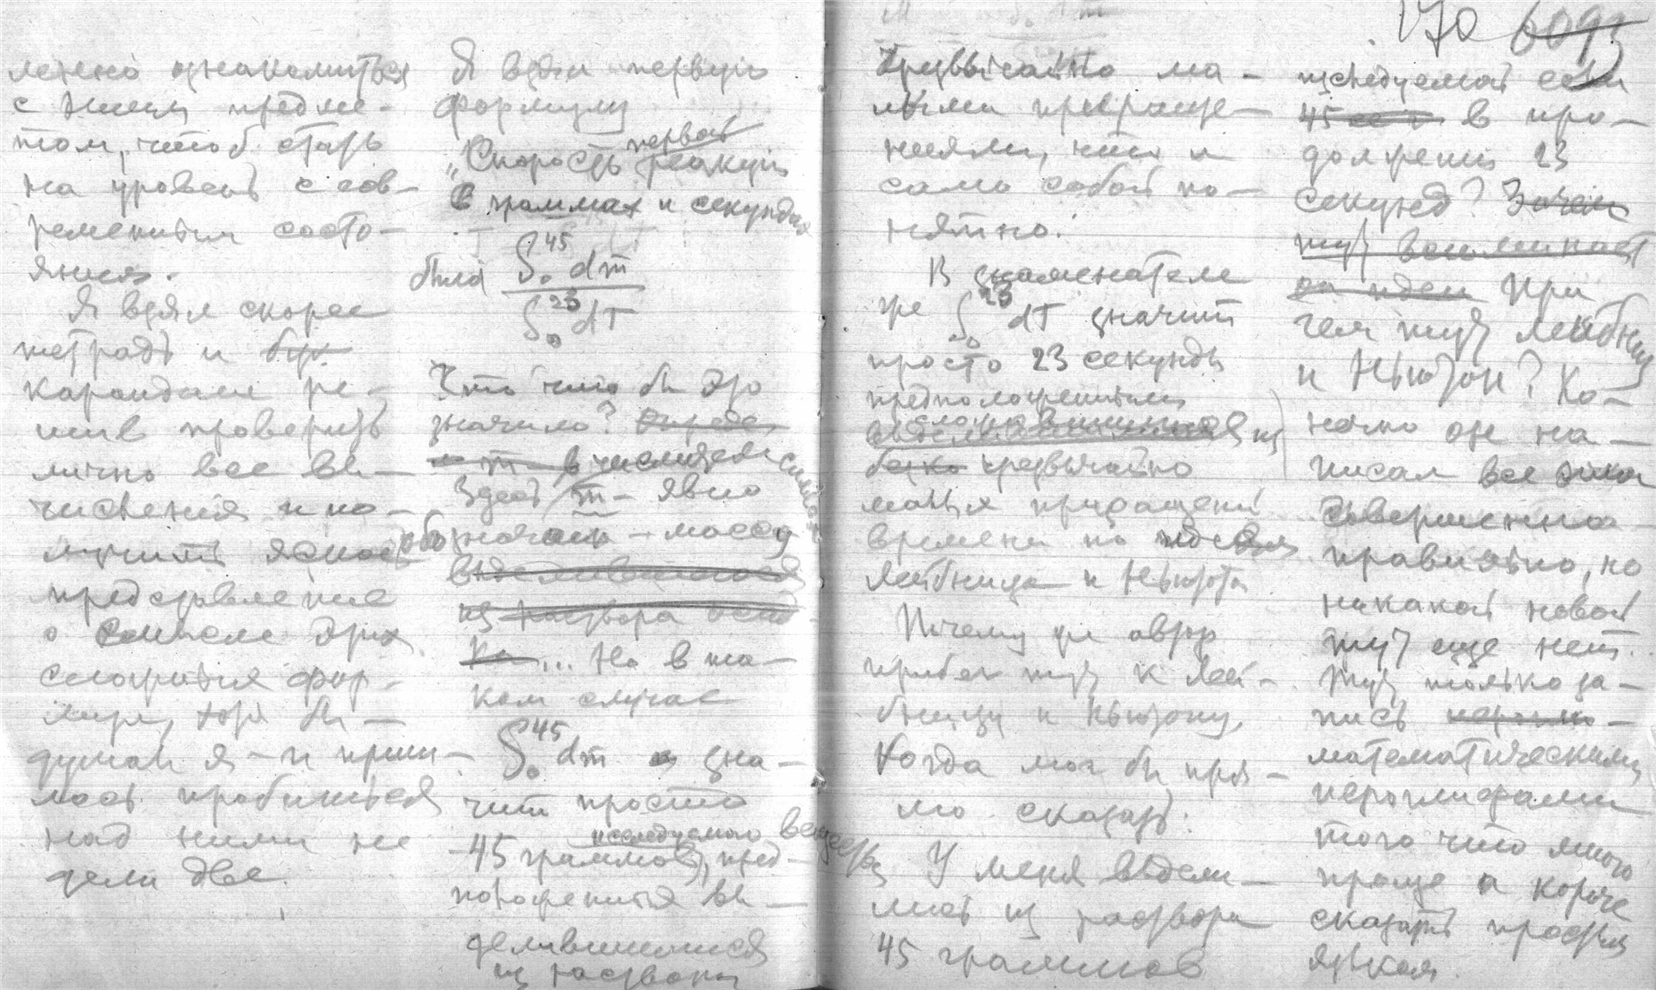 ленно ознакомиться
с этим предме-
том, чтоб стать
на уровень с сов-
ременным состо-
янием.
Я взял скорее
тетрадь и
карандаш ре-
шив проверить
лично все вы-
числения и по-
лучить ясное
представление
о смысле этих
сложных фор-
мул,
думал я – и приш-
лось пробиться
над ними не
дели две.
Я взял первую
формулу
первой
„Скорость реакции
в граммах и секундах
была ∫₀⁴⁵ dm
∫₀²³ dT
Что что бы это
значило?
в числителе
Здесь m – явно
обозначает – массу
выделившегося
из раствора
... Но в та-
ком случае
∫₀⁴⁵ dm зна-
чит просто
исследуемого вещества
45 граммов, пред-
положения вы-
делившимися
из раствора
170 609
Чрезвычайно ма-
лыми превраще-
ниями, что и
само собой по-
нятно.
В знаменателе
же ∫₀²³ dT значит
просто 23 секунды
предположенным
чрезвычайно
малых приращений
времени по идеям
Лейбница и Ньютона
Почему же автор
прибег тут к Лей-
бницу и Ньютону,
когда мог бы пря-
мо сказать:
У меня выдели-
лись из раствора
45 граммов
исследуемой соли
45 в про-
должении 23
секунд? Зачем
тут вспоминает
их идеи При
чем тут Лейбниц
и Ньютон? Ко-
нечно он на-
писал все это
совершенно
правильно, но
никакой новой
тут еще нет.
Тут только за-
пись
математическими
иероглифами
того что много
проще и короче
сказать простым
языком.